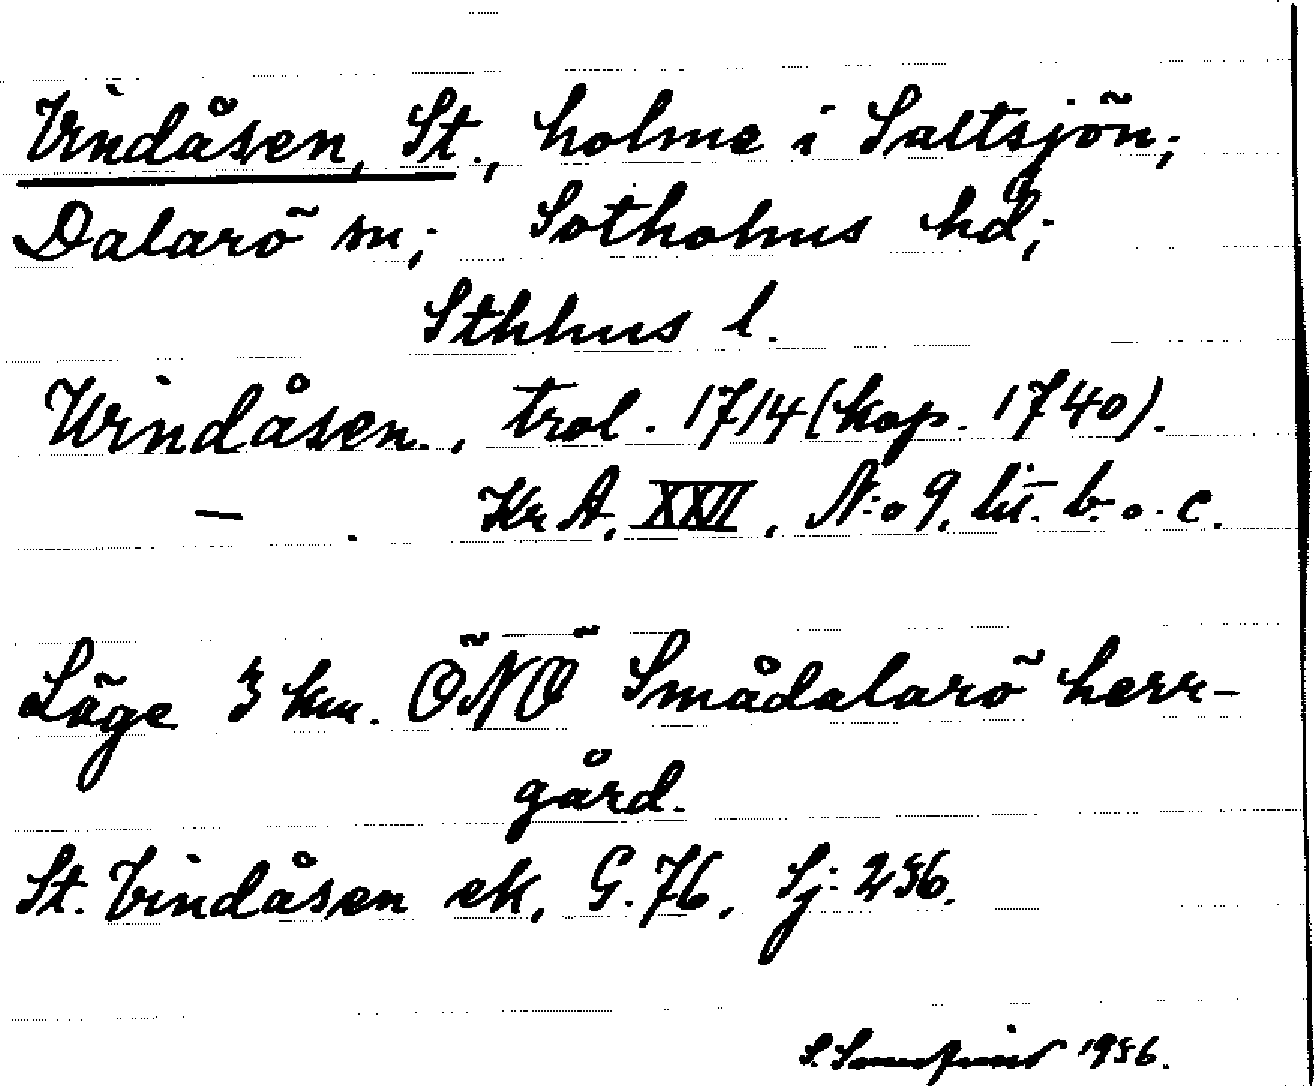 Vindåsen, St., holme i Saltsjön;
Dalarö sn; Sotholms hd;
Sthlms l.
Windåsen, trol. 1714 (kop. 1740).
— . Kr A, XXII, N:o 9. lit. b. o. c.
Läge 3 km. ÖNÖ Smådalarö herr-
gård.
St. Vindåsen ek. G. 76, Sj: 256.
S. 1956.